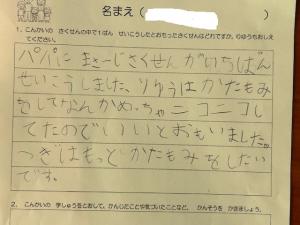 名まえ（
1．こんかいの さくせんの中で1ばん せいこうしたとおもったさくせんはどれですか。りゆうもおしえてください。
パパにまっさーじさくせんがいちばん
せいこうしました。りゆうはかたもみ
をしてなんかめっちゃニコニコし
てたのでいいとおもいました。
つぎはもっとかたもみをしたい
です。
2．こんかいの 学しゅうをとおして、かんじたことや気づいたことなど、 かんそうを かきましょう。